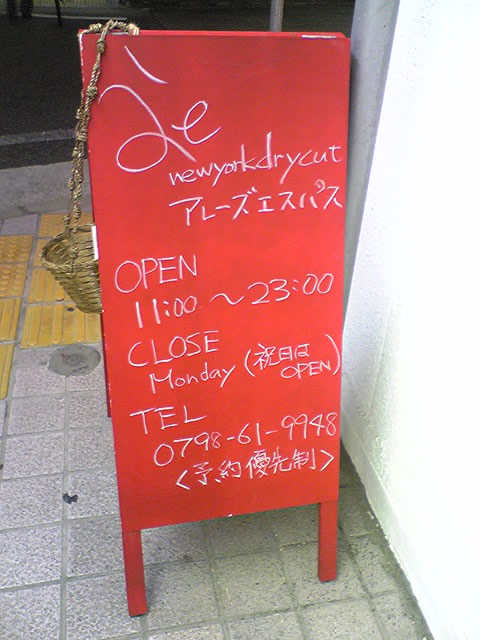 newyorkdrycut
アレーズエスパス
OPEN
11:00 ～23:00
CLOSE
Monday (祝日は
OPEN)
TEL
0798-61-9948
<予約優先制>